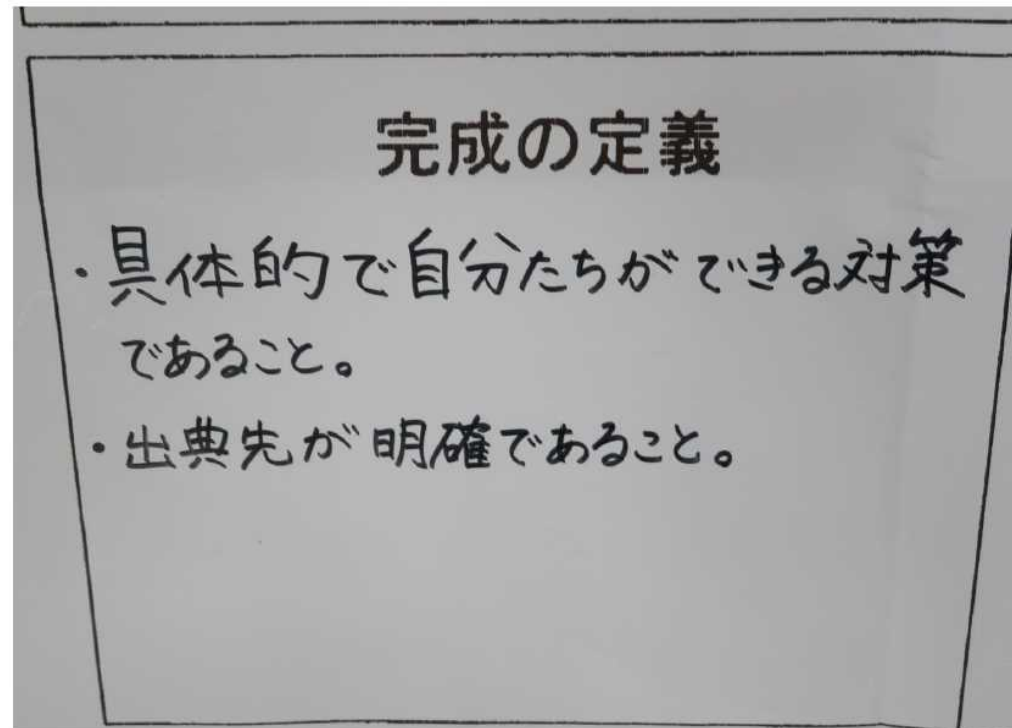 完成の定義
・具体的で自分たちができる対策
であること。
・出典先が明確であること。